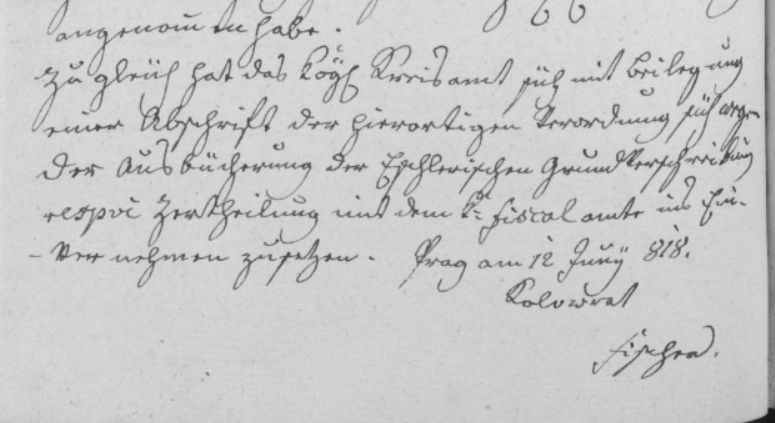 angenommen habe.
Zugleich hat das Kögl Kreisamt sich mit Beilegung
einer Abschrift der hierortigen Verordnung sich wegen
der Ausbücherung der Eschlerischen Grundverschreibung
respvi Zertheilung mit dem k: Fiscalamte ins Ein-
-vernehmen zusetzen. Prag am 12 Juny 818.
Kolowrat
Fischer.